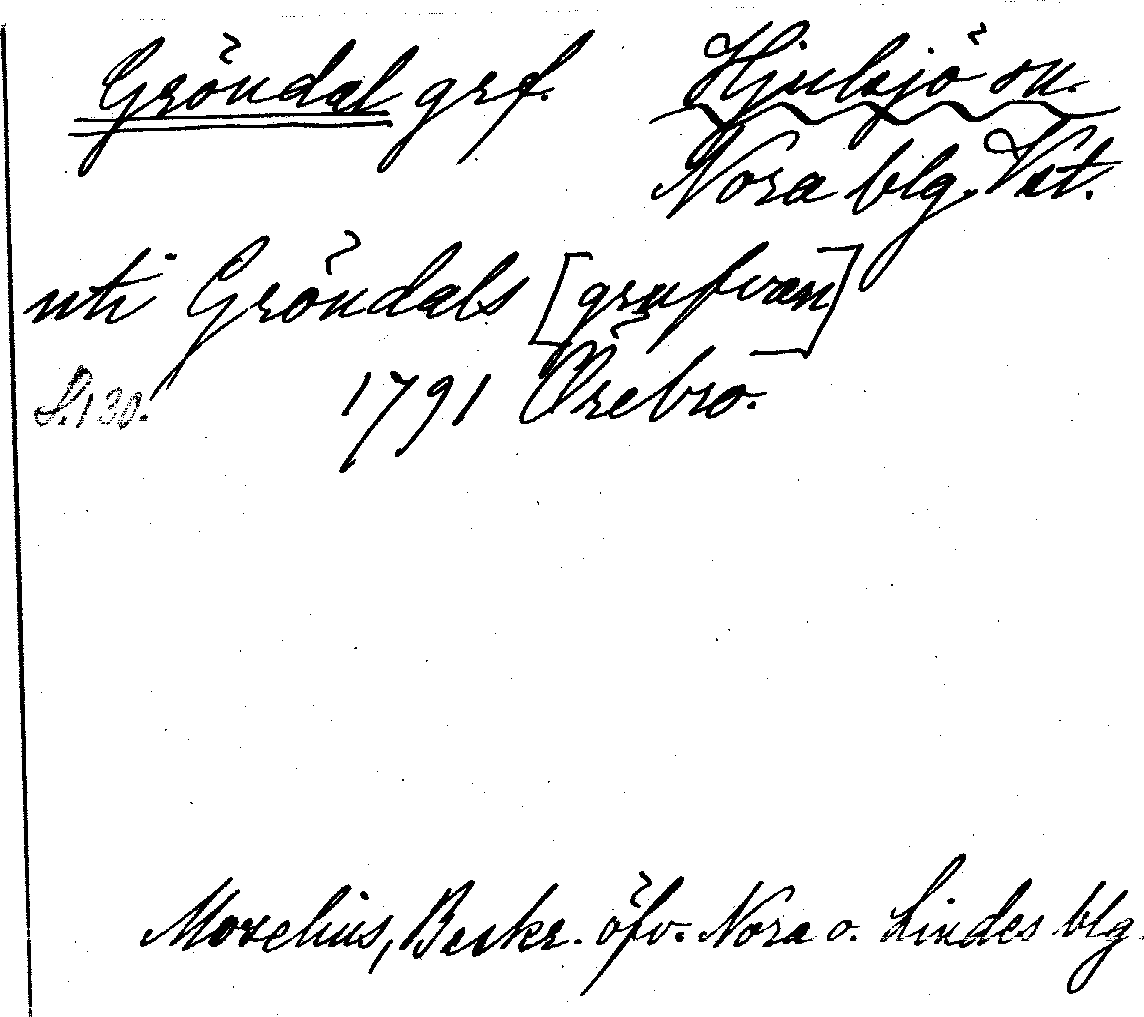 Gröndal grf. Hjulsjö sn.
Nora blg. Vst.
uti Gröndals [grufvan]
S. 130. 1791 Örebro.
Morelius, Beskr. öfv. Nora o. Lindes blg.